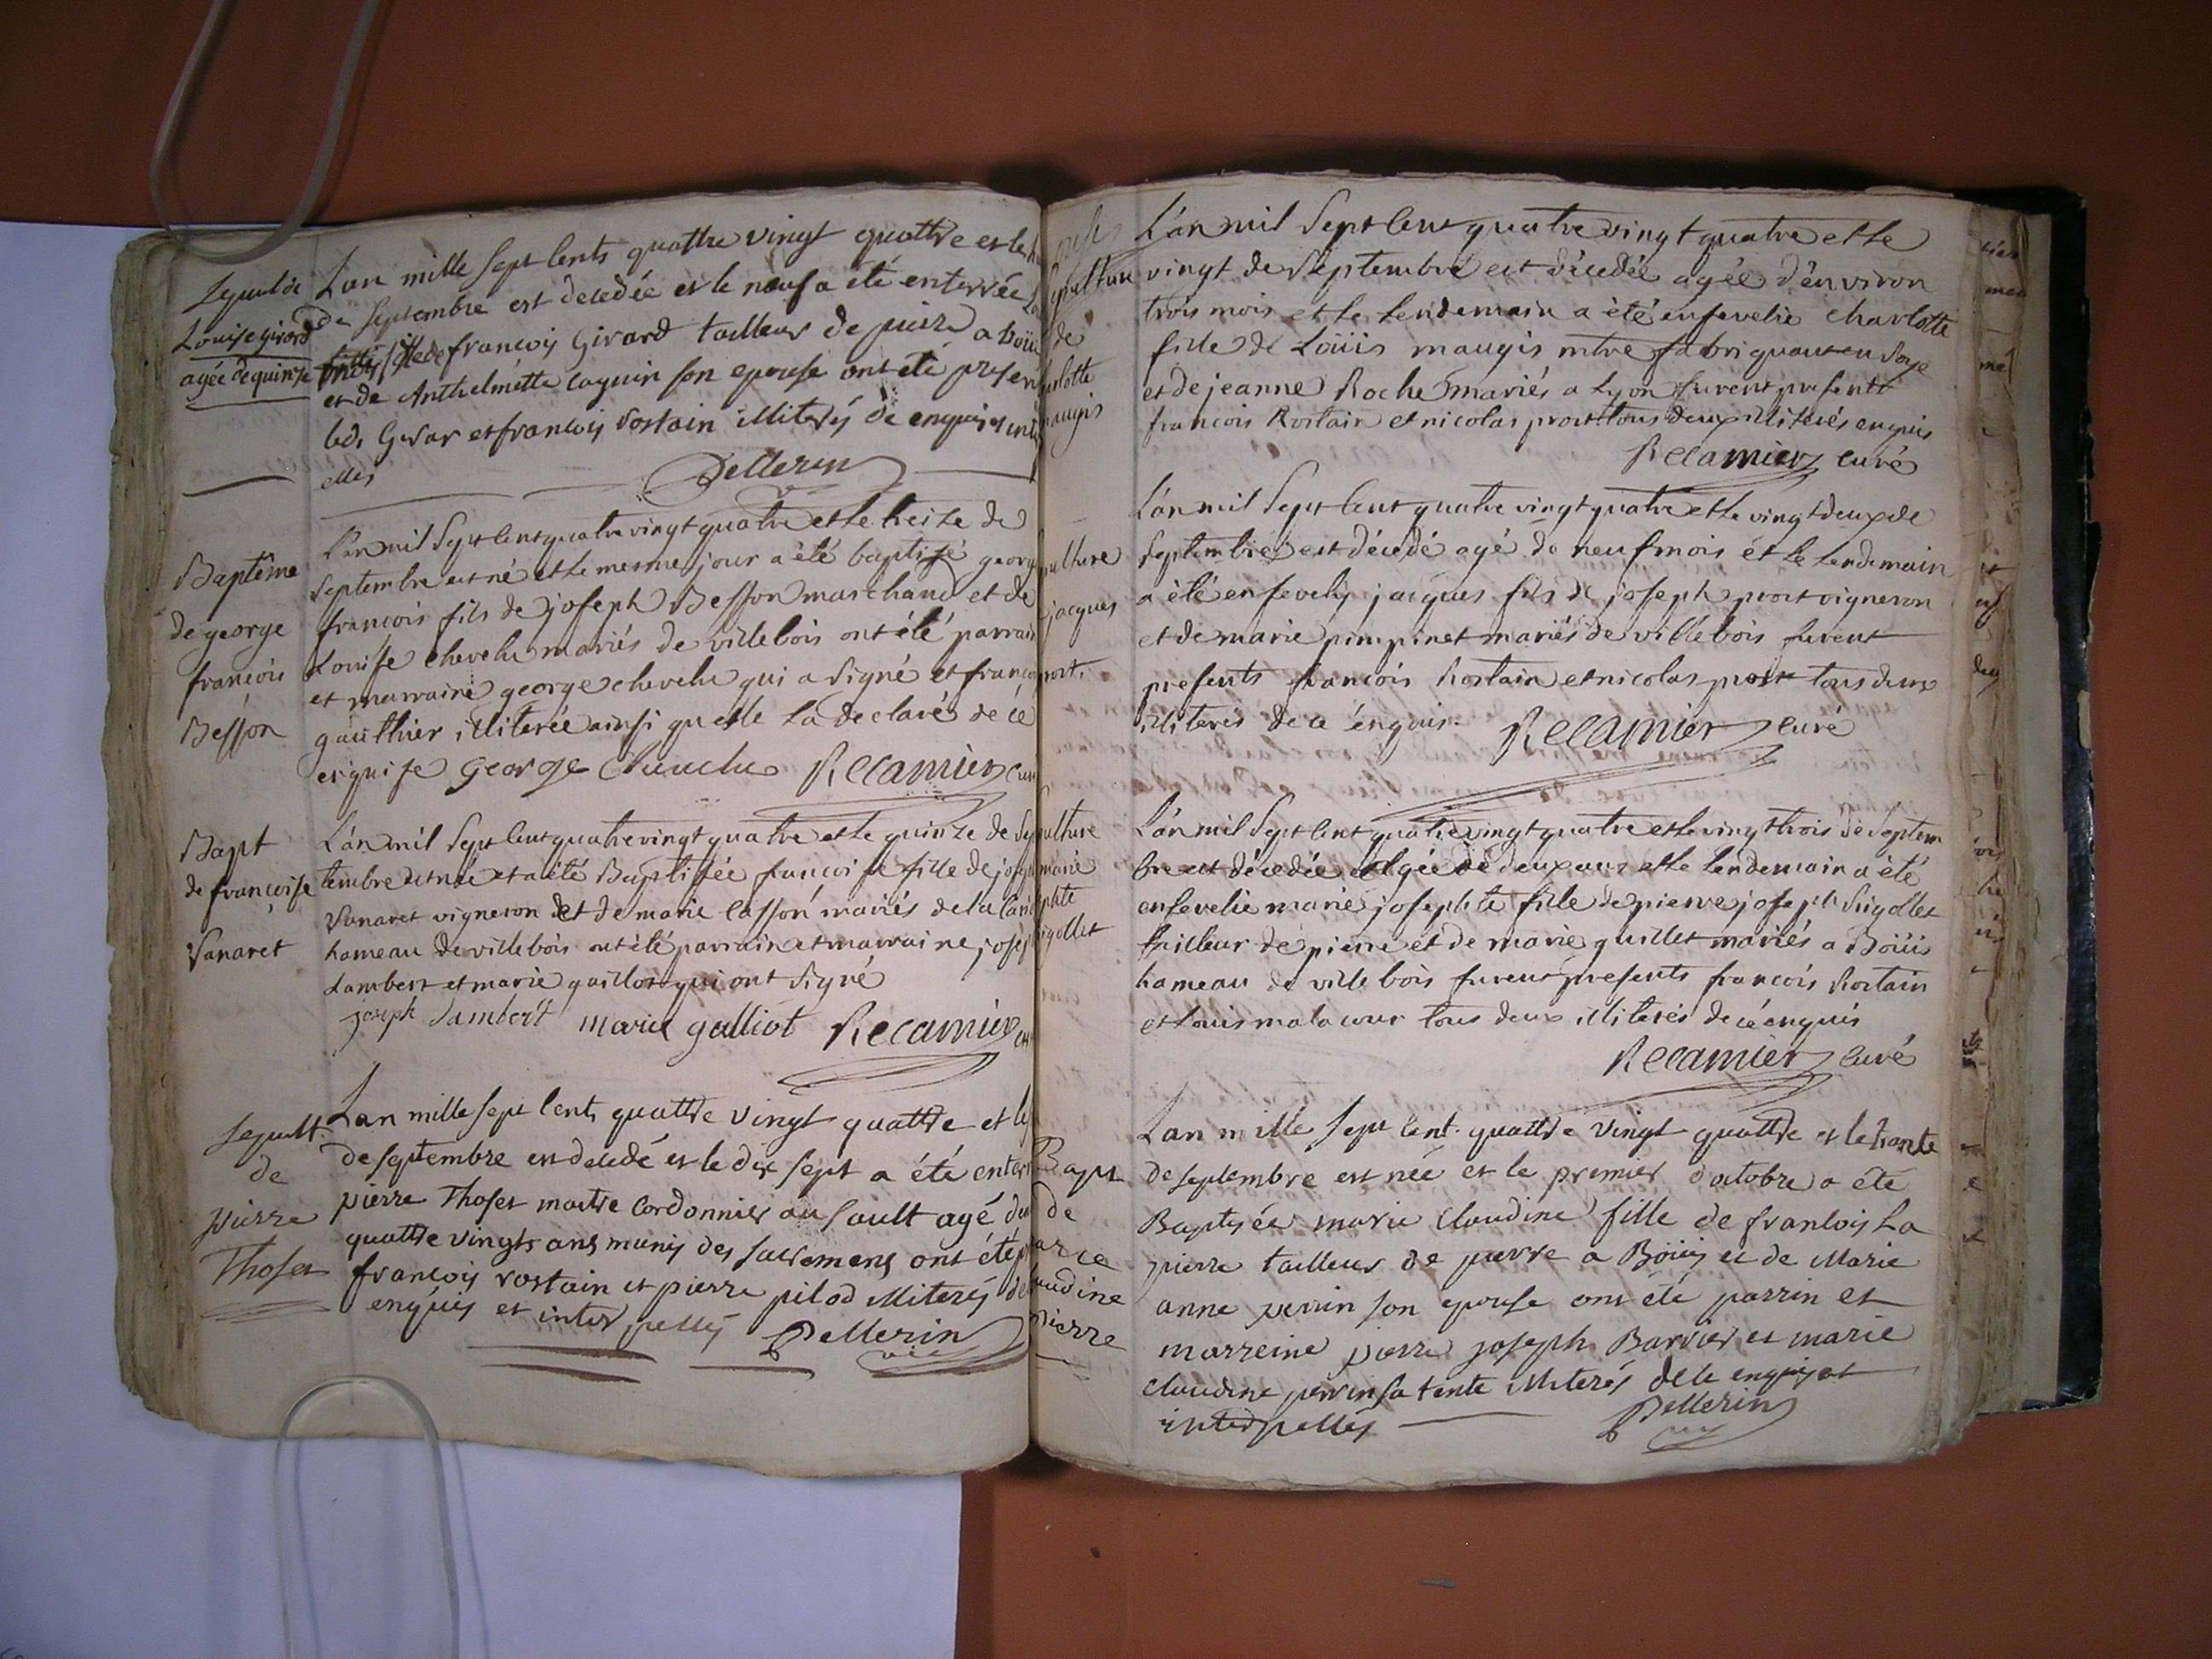 Sepult de
Louise girard
agée de quinse
Lan mille sept cents quattre vingt quattre et le
de septembre est decedée et le neuf a été enterrée
fille de francois Girard tailleur de pierre a Boüi
et de Anthelmette caguin son epouse ont été presen
led. Girar et francois rostain illiterés de enquis et inter
ellés
Pellerin
Baptême
de george
françois
Besson
L'an mil sept cent quatre vingt quatre et le treize de
septembre est né et le mesme jour a été baptisé george
francois fils de joseph Besson marchand et de
Louise chevelu mariés de villebois ont été parrain
et marraine george chevelu qui a signé et françoi
gauthier illiterée ainsi quelle la declaré de ce
enquise george Chevelu Recamier cur
Bapt
de françoise
Vanaret
L'an mil sept cent quatre vingt quatre et le quinze de Sep
tembre est née et a été Baptisée françoise fille de joseph
Vanaret vigneron et de marie Casson mariés de la
hameau de villebois ont été parrain et marraine, josep
Lambert et marie gaillot qui ont signé
joseph Lambert marie galliot Recamier cu
Sepult.
de
pierre
Thoset
Lan mille sept cents quattre vingt quattre et le
de septembre est decedé et le dix sept a été enter
pierre Thoset maitre Cordonnier au sault agé de
quattre vingts ans munis des sacremens ont été p
francois rostain et pierre pilod illiterés de
enquis et inter pellés Pellerin
vic
pulture
de
harlotte
maugis
L'an mil sept cent quatre vingt quatre et le
vingt de septembre est décedée agée d'environ
trois mois et le lendemain a été ensevelie charlotte
fille de Loüis maugis mtre fabriquant en soye
et de jeanne Roche mariés a Lyon furent presents
francois Rostain et nicolas prost tous deux illiterés enquis
Recamier curé
pulture
jacques
prost.
L'an mil sept cent quatre vingt quatre et le vingt deux de
septembre est décedé agé de neuf mois et le lendemain
a été ensevely jacques fils de joseph prost vigneron
et de marie pimpinet mariés de villebois furent
presents francois Rostain et nicolas prost tous deux
illiterés de ce enquis. Recamier curé
pulture
marie
ephte
rigollet
L'an mil sept cent quatre vingt quatre et le vingt trois de septem
bre est décedée agée de deux ans et le lendemain a été
ensevelie marie josephte fille de pierre joseph rigollet
tailleur de pierre et de marie guillet mariés a Boüis
hameau de villebois furent presents francois Rostain
et Louis malacour tous deux illiterés de ce enquis
Recamier curé
Bapt
de
arie
audine
pierre
Lan mille sept cent quattre vingt quattre et le trante
de septembre est née et le premier d'octobre a été
Baptisée marie claudine fille de francois La
pierre tailleur de pierre a Boüis et de Marie
anne perrin son epouse ont été parrin et
marreine pierre joseph Barrier et marie
claudine perrin sa tente illiterés de ce enquis et
interpellés Pellerin
vic